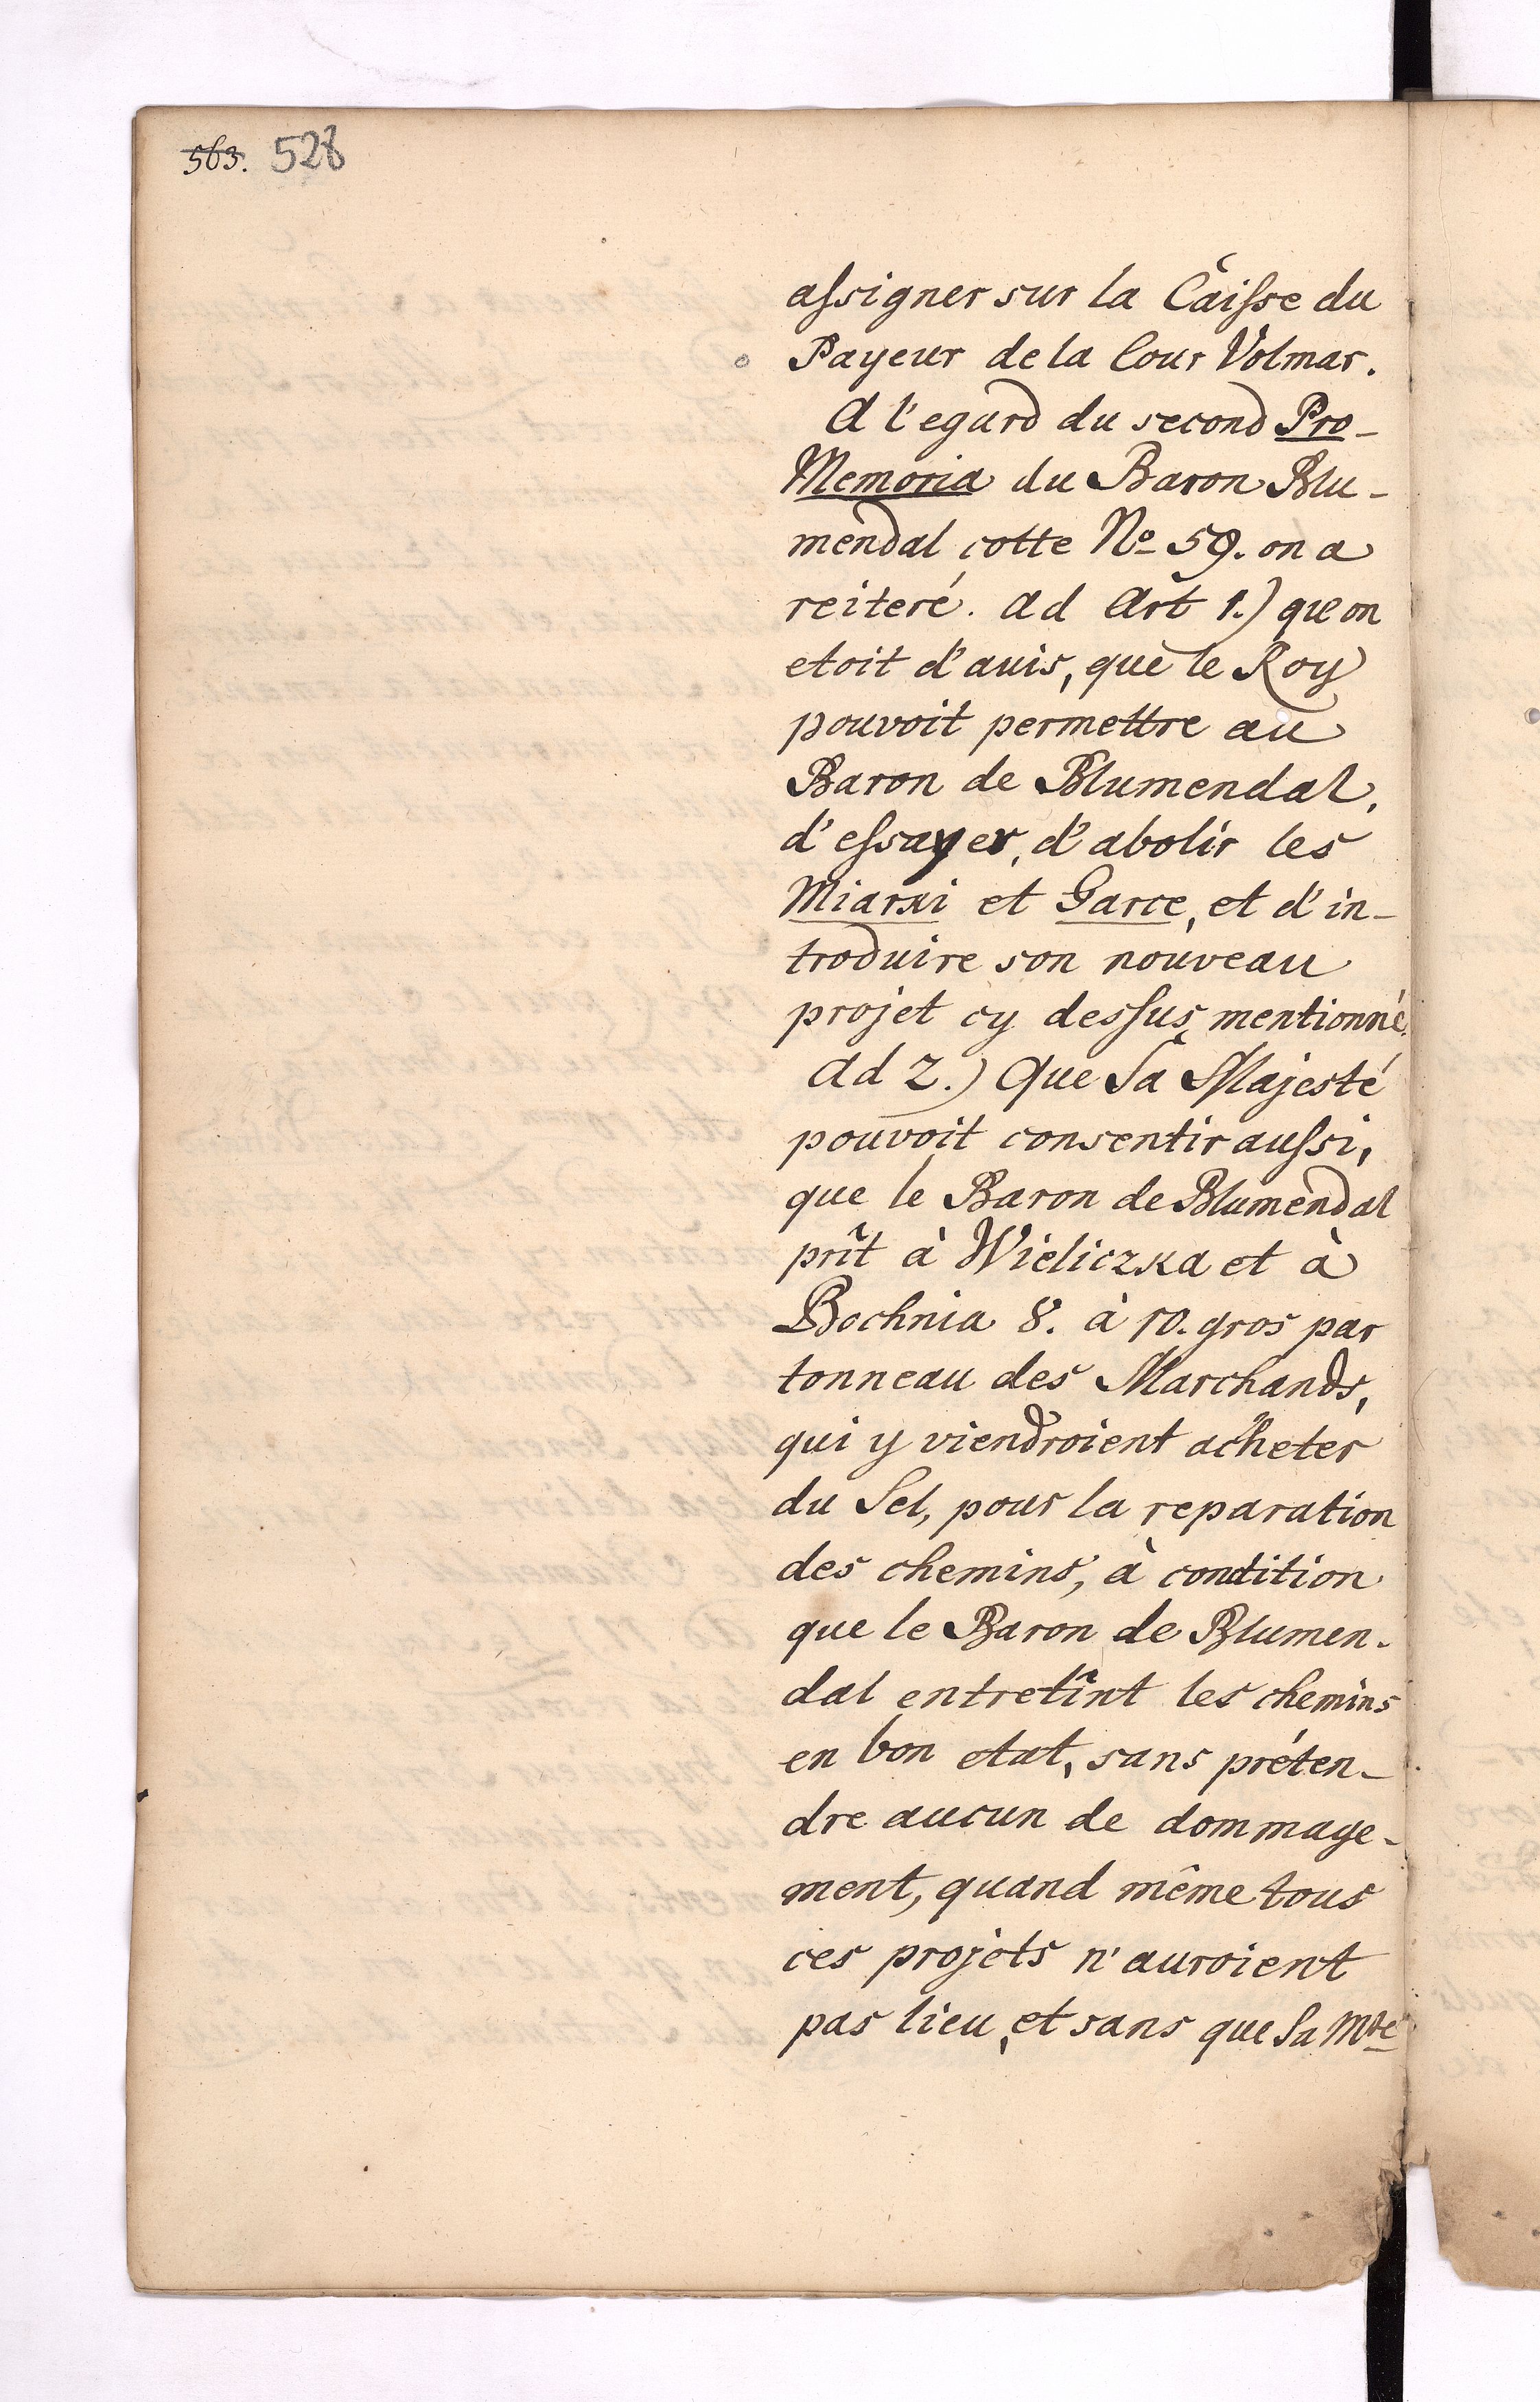 563. 528
assigner sur la Caisse du
Payeur de la Cour Volmar.
A l'egard du second Pro-
Memoria du Baron Blu-
mendal cotte No 59. on a
reiteré. ad Art 1.) que on
etoit d'avis, que le Roy
pouvoit permettre au
Baron de Blumendal,
d'essayer, d'abolir les
Miarki et Garce, et d'in-
troduire son nouveau
projet cy dessus mentionné.
Ad 2.) Que Sa Majesté
pouvoit consentir aussi,
que le Baron de Blumendal
prît à Wieliczka et à
Bochnia 8. à 10. gros par
tonneau des Marchands,
qui y viendroient acheter
du Sel, pour la reparation
des chemins, à condition
que le Baron de Blumen-
dal entretînt les chemins
en bon etat, sans préten-
dre aucun de dommage-
ment, quand même tous
ces projets n'auroient
pas lieu, et sans que Sa Mté